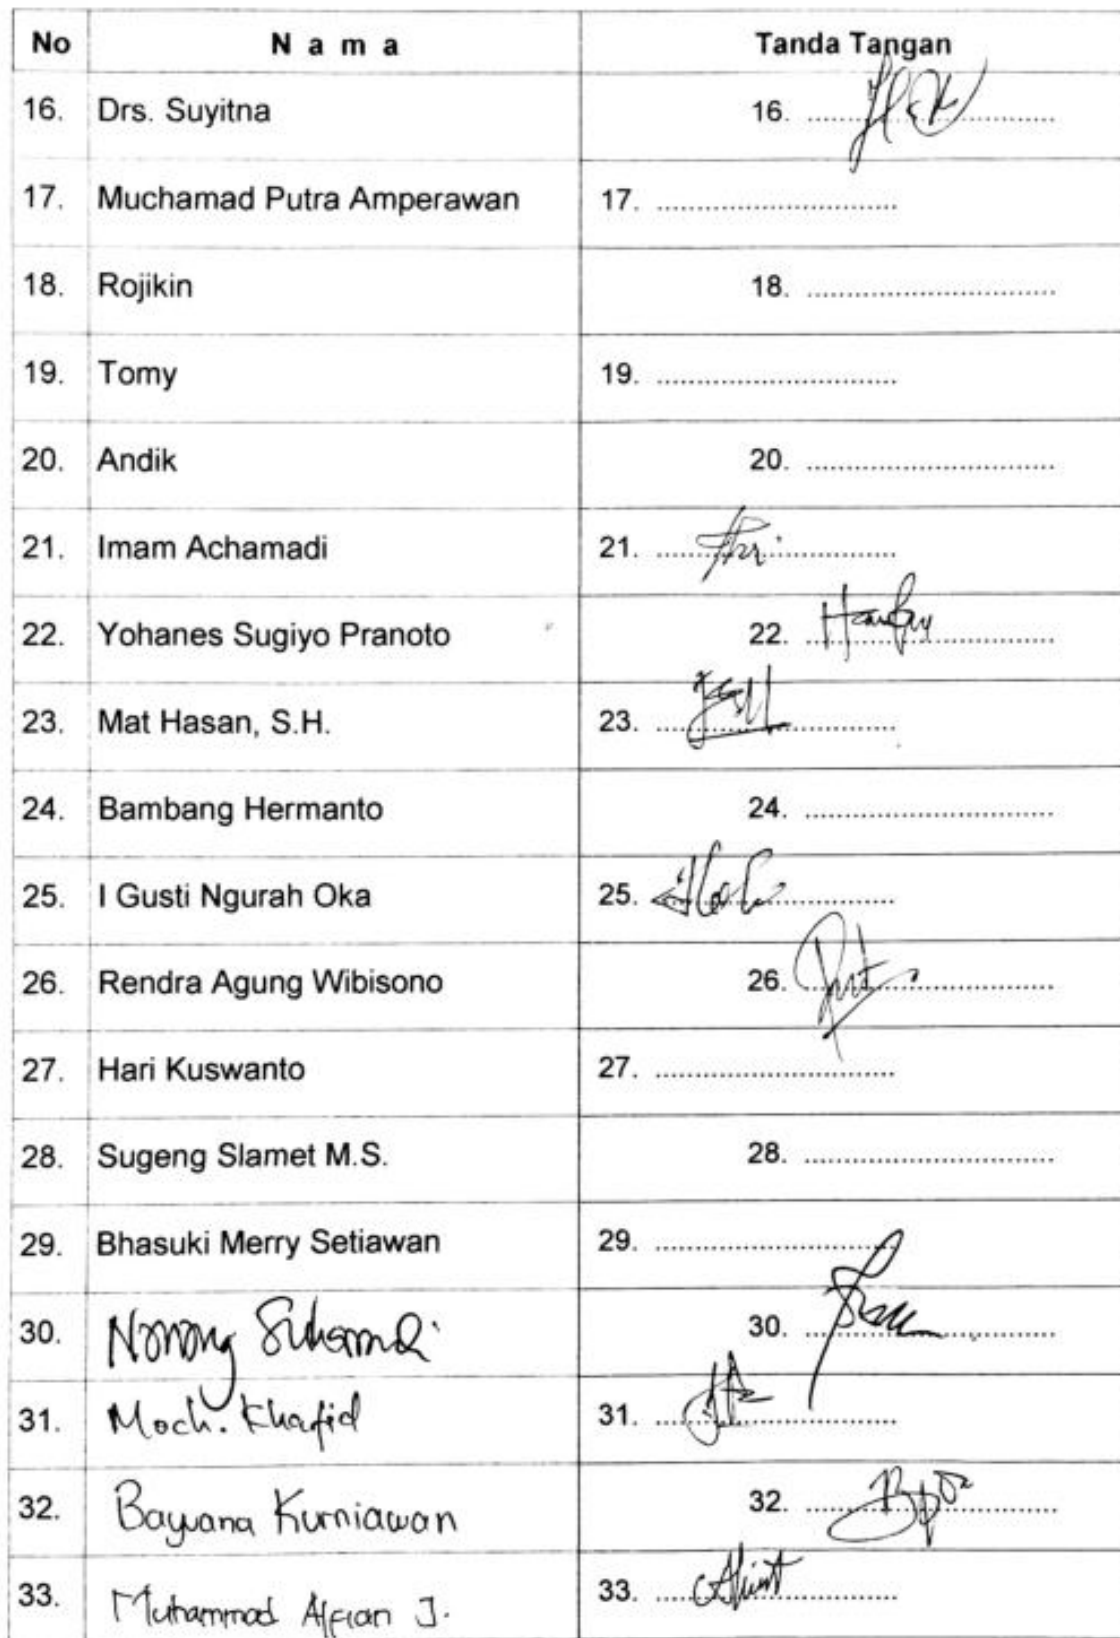 No N a m a Tanda Tangan
16. Drs. Suyitna 16. ..............................
17. Muchamad Putra Amperawan 17. ..............................
18. Rojikin 18. ..............................
19. Tomy 19. ..............................
20. Andik 20. ..............................
21. Imam Achamadi 21. ..............................
22. Yohanes Sugiyo Pranoto 22. ..............................
23. Mat Hasan, S.H. 23. ..............................
24. Bambang Hermanto 24. ..............................
25. I Gusti Ngurah Oka 25. ..............................
26. Rendra Agung Wibisono 26. ..............................
27. Hari Kuswanto 27. ..............................
28. Sugeng Slamet M.S. 28. ..............................
29. Bhasuki Merry Setiawan 29. ..............................
30. 30. ..............................
31. Moch. Khafid 31. ..............................
32. Bayuana Kurniawan 32. ..............................
33. Muhammad Alfian J. 33. ..............................